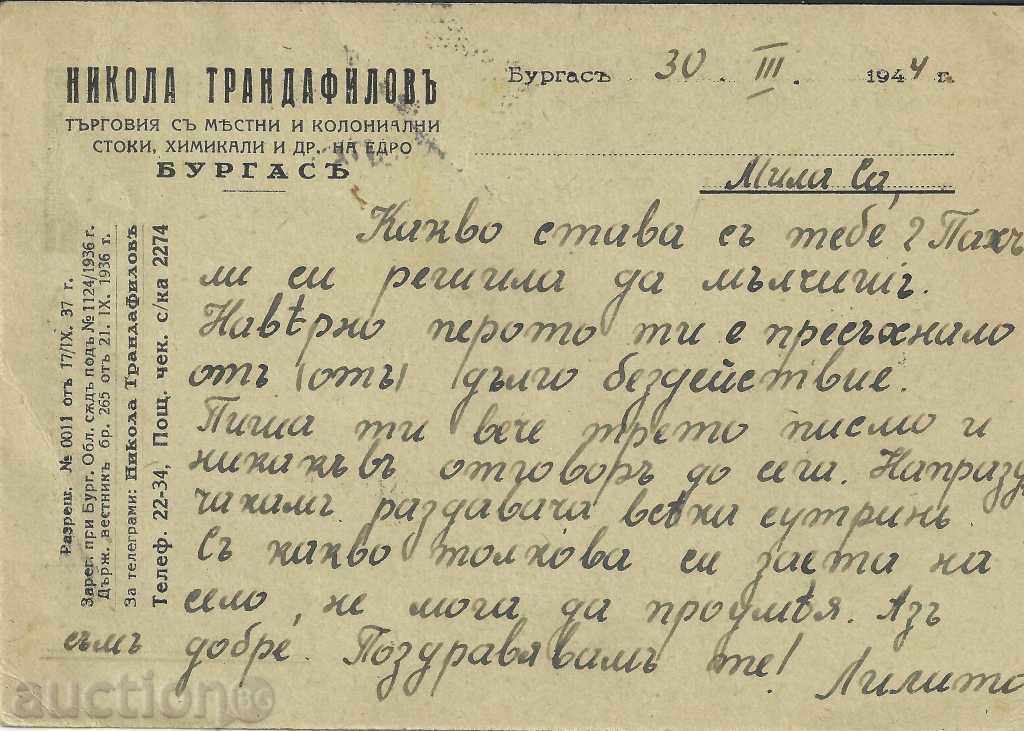 НИКОЛА ТРАНДАФИЛОВЪ
ТЪРГОВИЯ СЪ МѢСТНИ И КОЛОНИАЛНИ
СТОКИ, ХИМИКАЛИ И ДР. НА ЕДРО
БУРГАСЪ
Бургасъ 30. III. 1944 г.
Мила Со,
Какво става съ тебе? Пакъ
ли си решила да мълчишъ.
Навѣрно перото ти е пресъхнало
отъ (отъ) дълго бездействие.
Пиша ти вече трето писмо и
никакъвъ отговоръ до сега. Напразд
чакамъ раздавача всѣка сутринь.
Съ какво толкова си заета на
село, не мога да проумѣя. Азъ
съмъ добре. Поздравявамъ те! Лилито
Разреш. № 0011 отъ 17/IX. 37 г.
Зарег. при Бург. Обл. сждъ подъ № 1124/1936 г.
Държ. вестникъ бр. 265 отъ 21. IX. 1936 г.
За телеграми: Никола Трандафиловъ
Телеф. 22-34, Пощ. чек. с/ка 2274
auction.BG